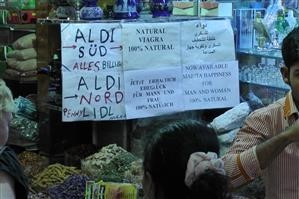 ALDI
SÜD
ALLES BILLIG
ALDI
NORD
PENNY LIDL
NATURAL
VIAGRA
100% NATURAL
JETZT ERHÄLTLICH
EHEGLÜCK
FÜR MANN UND
FRAU
100% NATÜRLICH
دواء
NOW AVAILABLE
HAPPINESS
FOR
MAN AND WOMAN
100% NATURAL